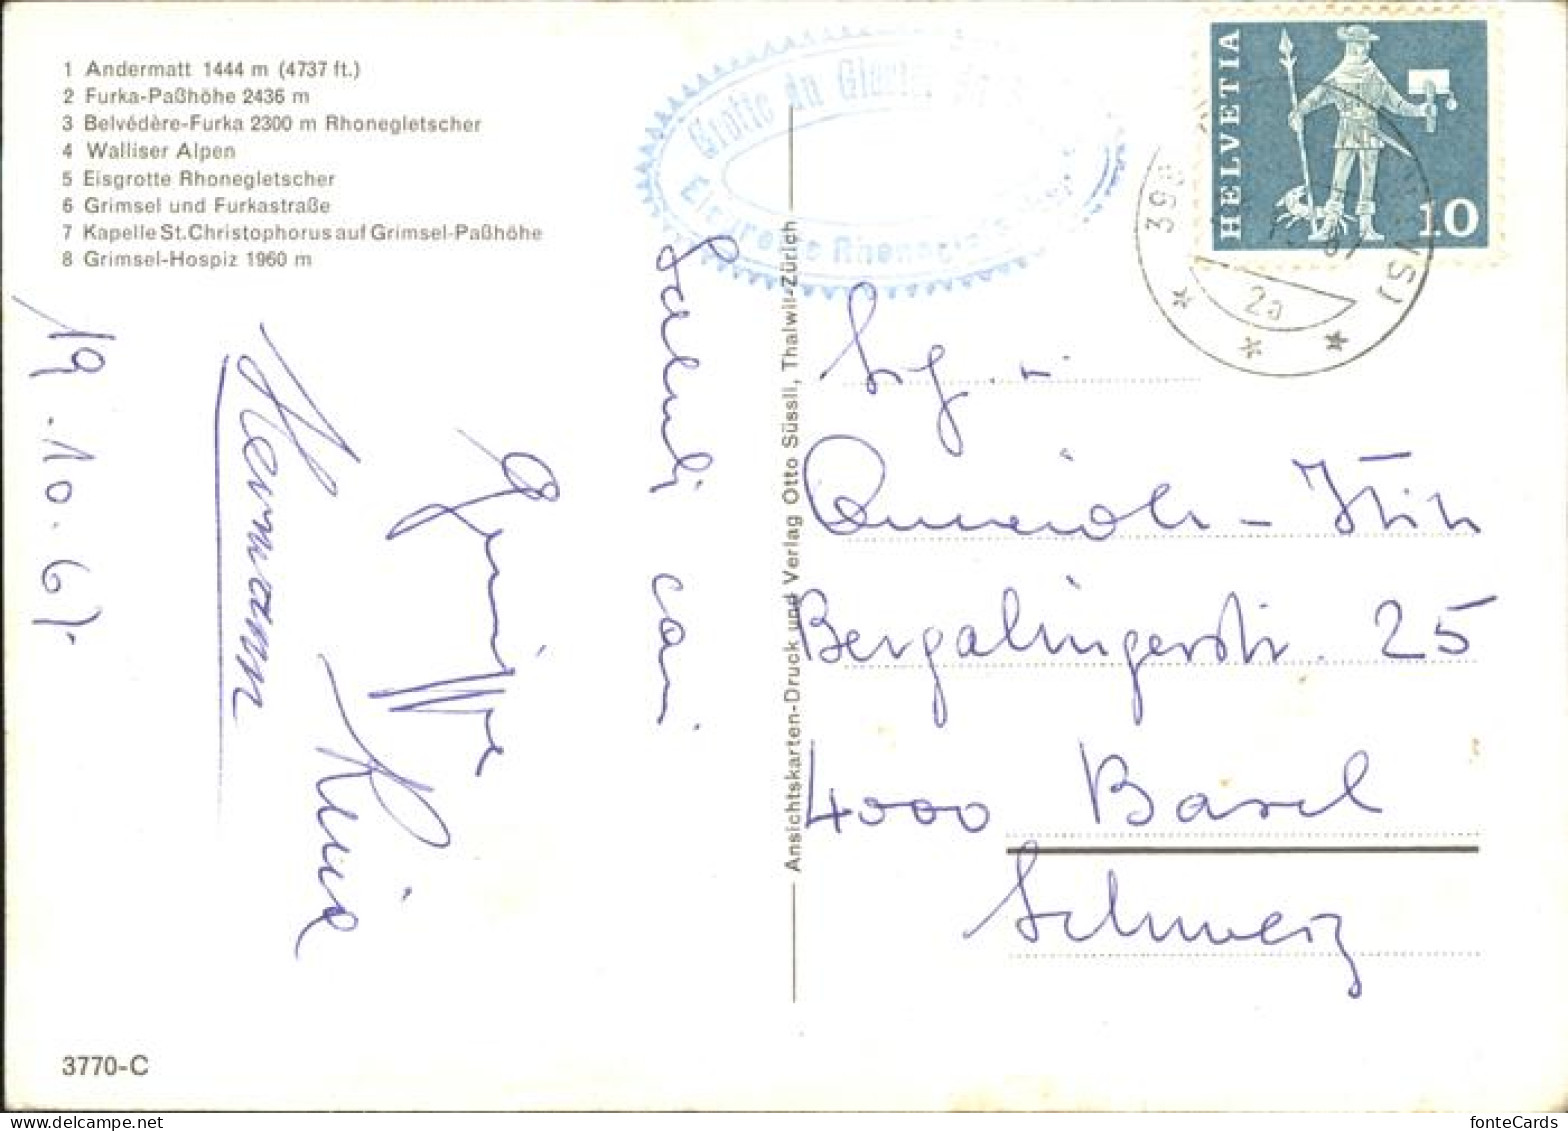 1 Andermatt 1444 m (4737 ft.)
2 Furka-Paßhöhe 2436 m
3 Belvédère-Furka 2300 m Rhonegletscher
4 Walliser Alpen
5 Eisgrotte Rhonegletscher
6 Grimsel und Furkastraße
7 Kapelle St. Christophorus auf Grimsel-Paßhöhe
8 Grimsel-Hospiz 1960 m
Grotte du Glacier
HELVETIA
10
2a
19.10.67.
Hermann
Saluti cari
Ansichtskarten-Druck und Verlag Otto Süssli, Thalwil-Zürich
Sig.
Bergalingerstr. 25
4000 Basel
Schweiz
3770-C
fonteCards